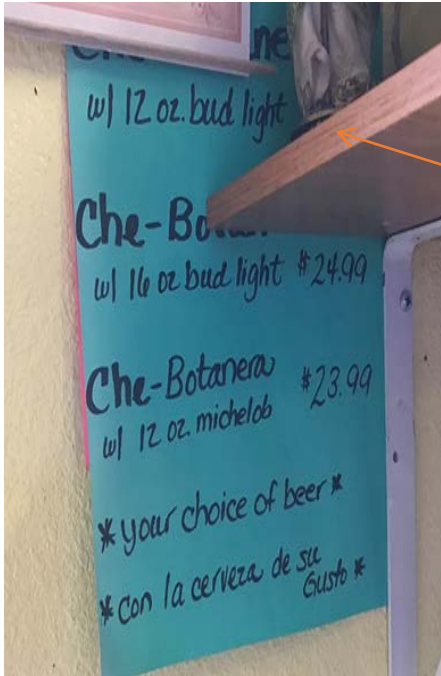 w/ 12 oz. bud light
Che-
w/ 16 oz bud light $24.99
Che-Botanera $23.99
w/ 12 oz. michelob
*your choice of beer*
*con la cerveza de su
Gusto*